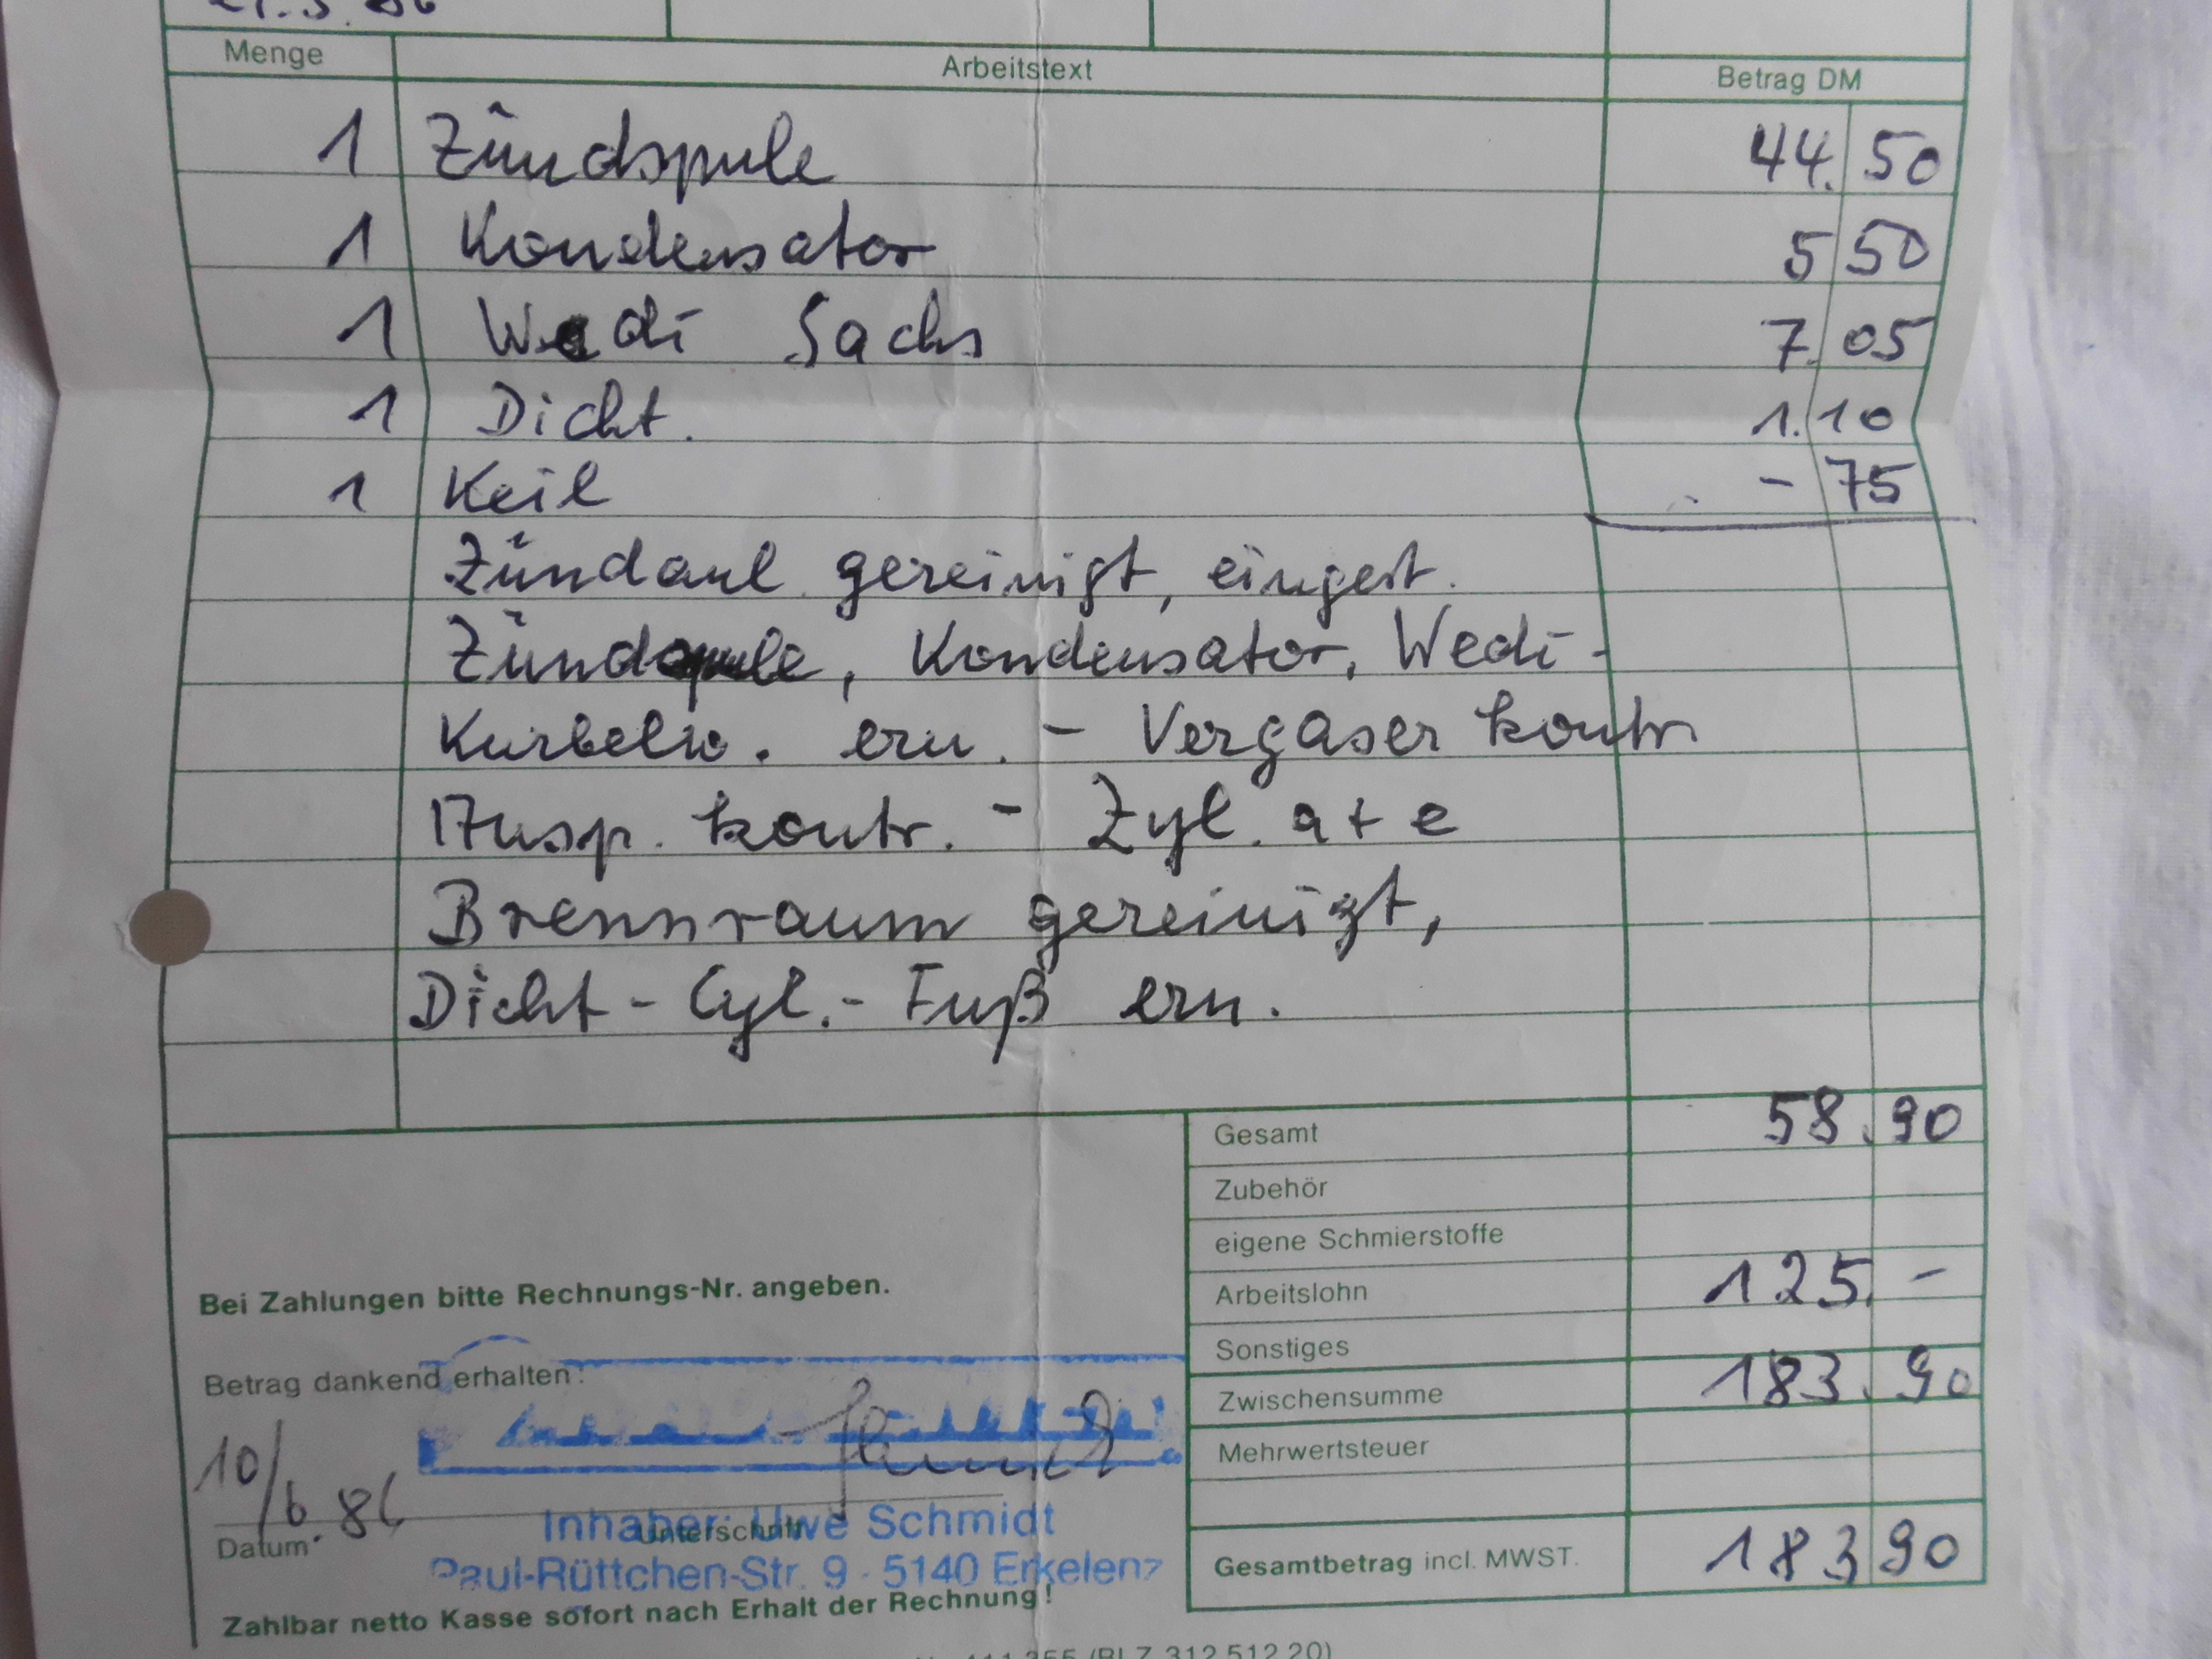 Menge Arbeitstext Betrag DM
1 Zündspule 44. 50
1 Kondensator 5 50
1 Wedi Sachs 7. 05
1 Dicht. 1. 10
1 Keil - 75
Zündanl. gereinigt, eingest.
Zündspule, Kondensator, Wedi-
Kurbelw. ern. - Vergaser kontr
Ausp. kontr. - Zyl. a + e
Brennraum gereinigt,
Dicht - Cyl. - Fuß ern.
Gesamt 58. 90
Zubehör
eigene Schmierstoffe
Arbeitslohn 125. -
Sonstiges
Zwischensumme 183. 90
Mehrwertsteuer
Gesamtbetrag incl. MWST. 183 90
Bei Zahlungen bitte Rechnungs-Nr. angeben.
Betrag dankend erhalten:
10/6.86
Datum Unterschrift
Inhaber: Uwe Schmidt
Paul-Rüttchen-Str. 9 · 5140 Erkelenz
Zahlbar netto Kasse sofort nach Erhalt der Rechnung!
(BLZ 312 512 20)